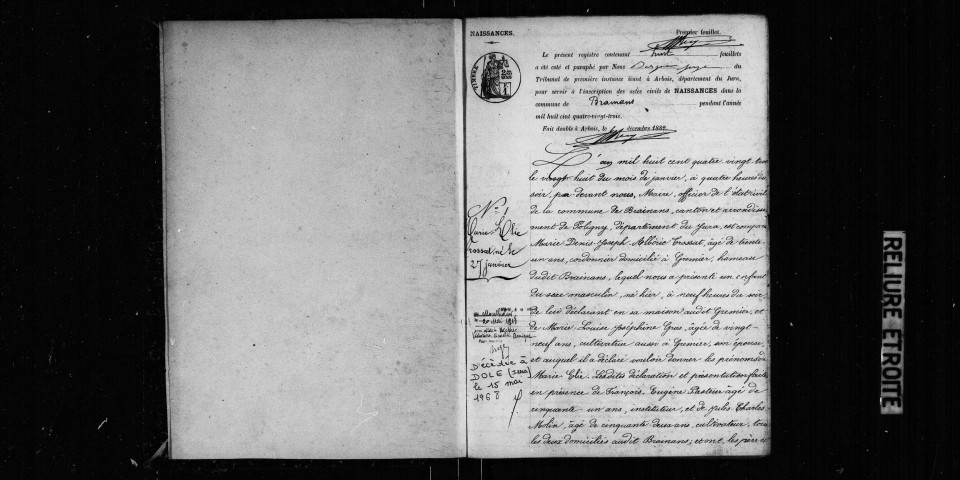 NAISSANCES.
Premier feuillet.
TIMBRE
Le présent registre contenant huit feuillets
a été coté et paraphé par Nous juge du
Tribunal de première instance séant à Arbois, département du Jura,
pour servir à l'inscription des actes civils de NAISSANCES dans la
commune de Brainans pendant l'année
mil huit cent quatre-vingt-trois.
Fait double à Arbois, le décembre 1882
L'an mil huit cent quatre vingt trois
le vingt huit du mois de janvier, à quatre heures du
soir, par devant nous, Maire, officier de l'état civil
de la commune de Brainans, canton et arrondisse
ment de Poligny, département du Jura, est comparu
Marie Denis Joseph Albéric Trossat, âgé de trente
un ans, cordonnier domicilié à Grenier, hameau
dudit Brainans, lequel nous a présenté un enfant
du sexe masculin, né hier, à neuf heures du soir
de lui déclarant en sa maison audit Grenier, et
de Marie Louise Joséphine Gras, âgée de vingt-
neuf ans, cultivateur aussi à Grenier, son épouse,
et auquel il a déclaré vouloir donner les prénoms de
Marie Elie. Lesdites déclaration et présentation faites
en présence de François Eugène Pasteur âgé de
cinquante un ans, instituteur, et de Jules Charles
Molin, âgé de cinquante deux ans, cultivateur, tous
les deux domiciliés audit Brainans; et ont, les père et
N° 1
Marie Elie
Trossat, né le
27 janvier
20 Mai
Décédé à
DOLE (Jura)
le 15 mai
1968
RELIURE ETROITE